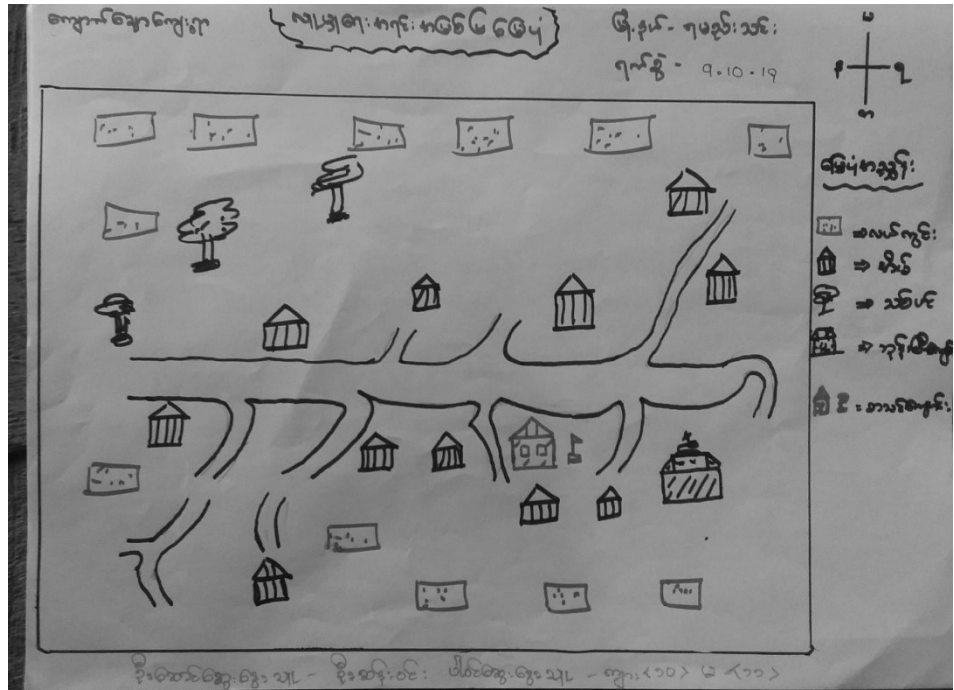 ကျောက်ချောကျေးရွာ
လူမှုရေးအရင်းအမြစ်ပြမြေပုံ
မြို့နယ် - ရမည်းသင်း
ရက်စွဲ - 9.10.19
မြေပုံအညွှန်း
⇒ လယ်ကွင်း
⇒ အိမ်
⇒ သစ်ပင်
⇒ ဘုန်းကြီးကျောင်း
= စာသင်ကျောင်း
ဦးဆောင်ဆွေးနွေးသူ - ဦးဆန်းဝင်း ပါဝင်ဆွေးနွေးသူ - ကျား <၁၀> မ <၁၁>